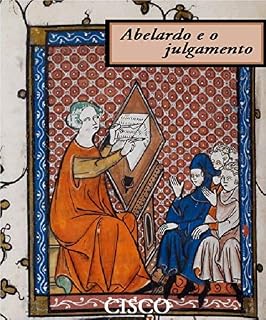 Abelardo e o
julgamento
CISCO